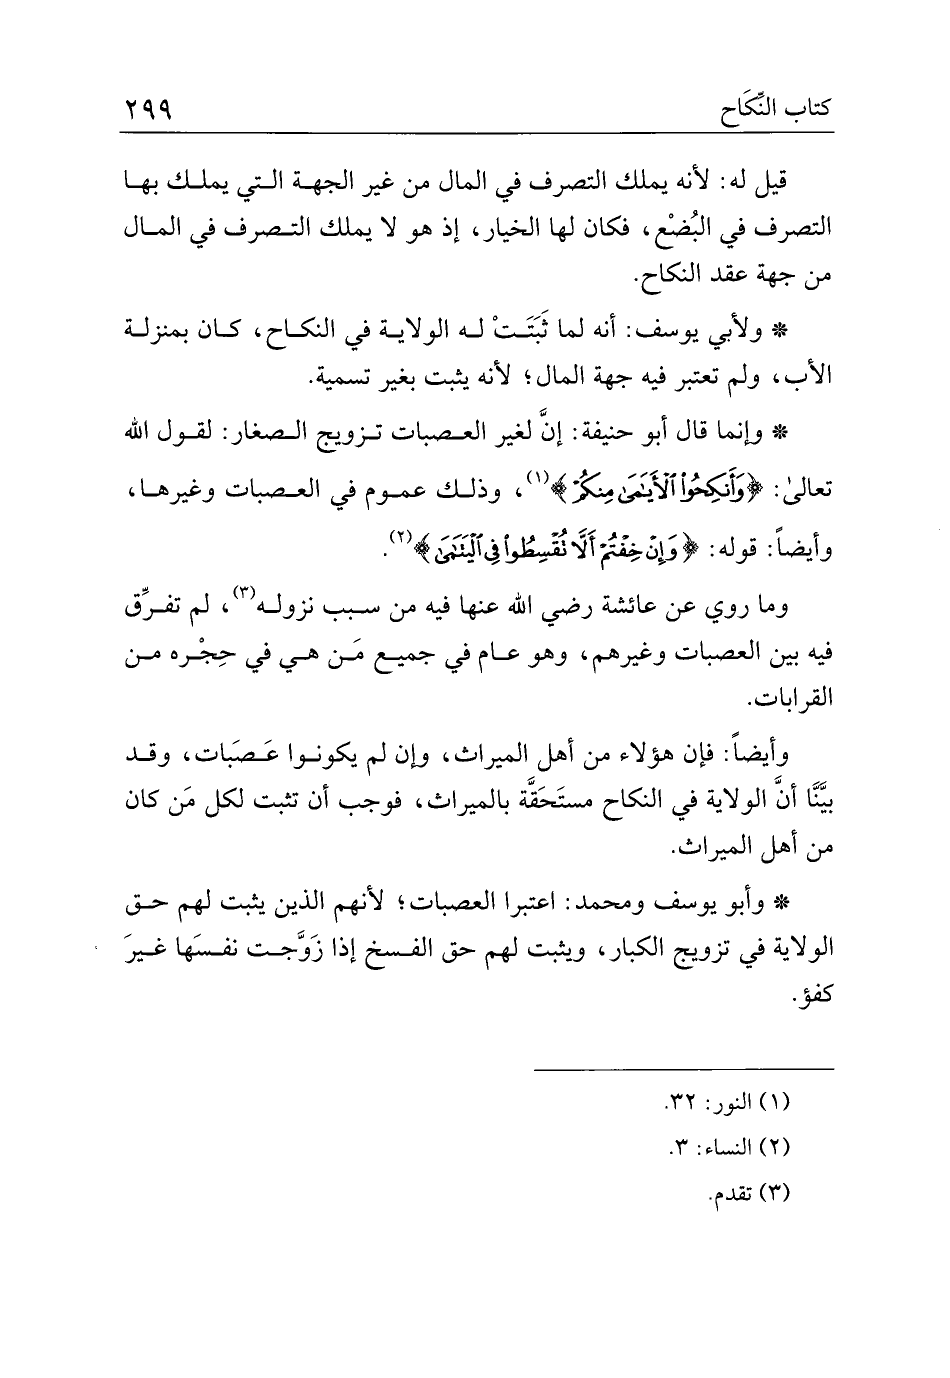 كتاب النِّكَاح ٢٩٩
قيل له: لأنه يملك التصرف في المال من غير الجهة التي يملك بها
التصرف في البُضْع، فكان لها الخيار، إذ هو لا يملك التصرف في المال
من جهة عقد النكاح.
* ولأبي يوسف: أنه لما ثَبَتَتْ له الولاية في النكاح، كان بمنزلة
الأب، ولم تعتبر فيه جهة المال؛ لأنه يثبت بغير تسمية.
* وإنما قال أبو حنيفة: إنَّ لغير العصبات تزويج الصغار: لقول الله
تعالىٰ: ﴿وَأَنكِحُوا۟ ٱلْأَيَـٰمَىٰ مِنكُمْ﴾(١)، وذلك عموم في العصبات وغيرها،
وأيضاً: قوله: ﴿وَإِنْ خِفْتُمْ أَلَّا تُقْسِطُوا۟ فِى ٱلْيَتَـٰمَىٰ﴾(٢).
وما روي عن عائشة رضي الله عنها فيه من سبب نزوله(٣)، لم تفرِّق
فيه بين العصبات وغيرهم، وهو عام في جميع مَن هي في حِجْره من
القرابات.
وأيضاً: فإن هؤلاء من أهل الميراث، وإن لم يكونوا عَصَبَات، وقد
بيَّنَّا أنَّ الولاية في النكاح مستَحَقَّة بالميراث، فوجب أن تثبت لكل مَن كان
من أهل الميراث.
* وأبو يوسف ومحمد: اعتبرا العصبات؛ لأنهم الذين يثبت لهم حق
الولاية في تزويج الكبار، ويثبت لهم حق الفسخ إذا زَوَّجت نفسَها غيرَ
كفؤ.
(١) النور: ٣٢.
(٢) النساء: ٣.
(٣) تقدم.